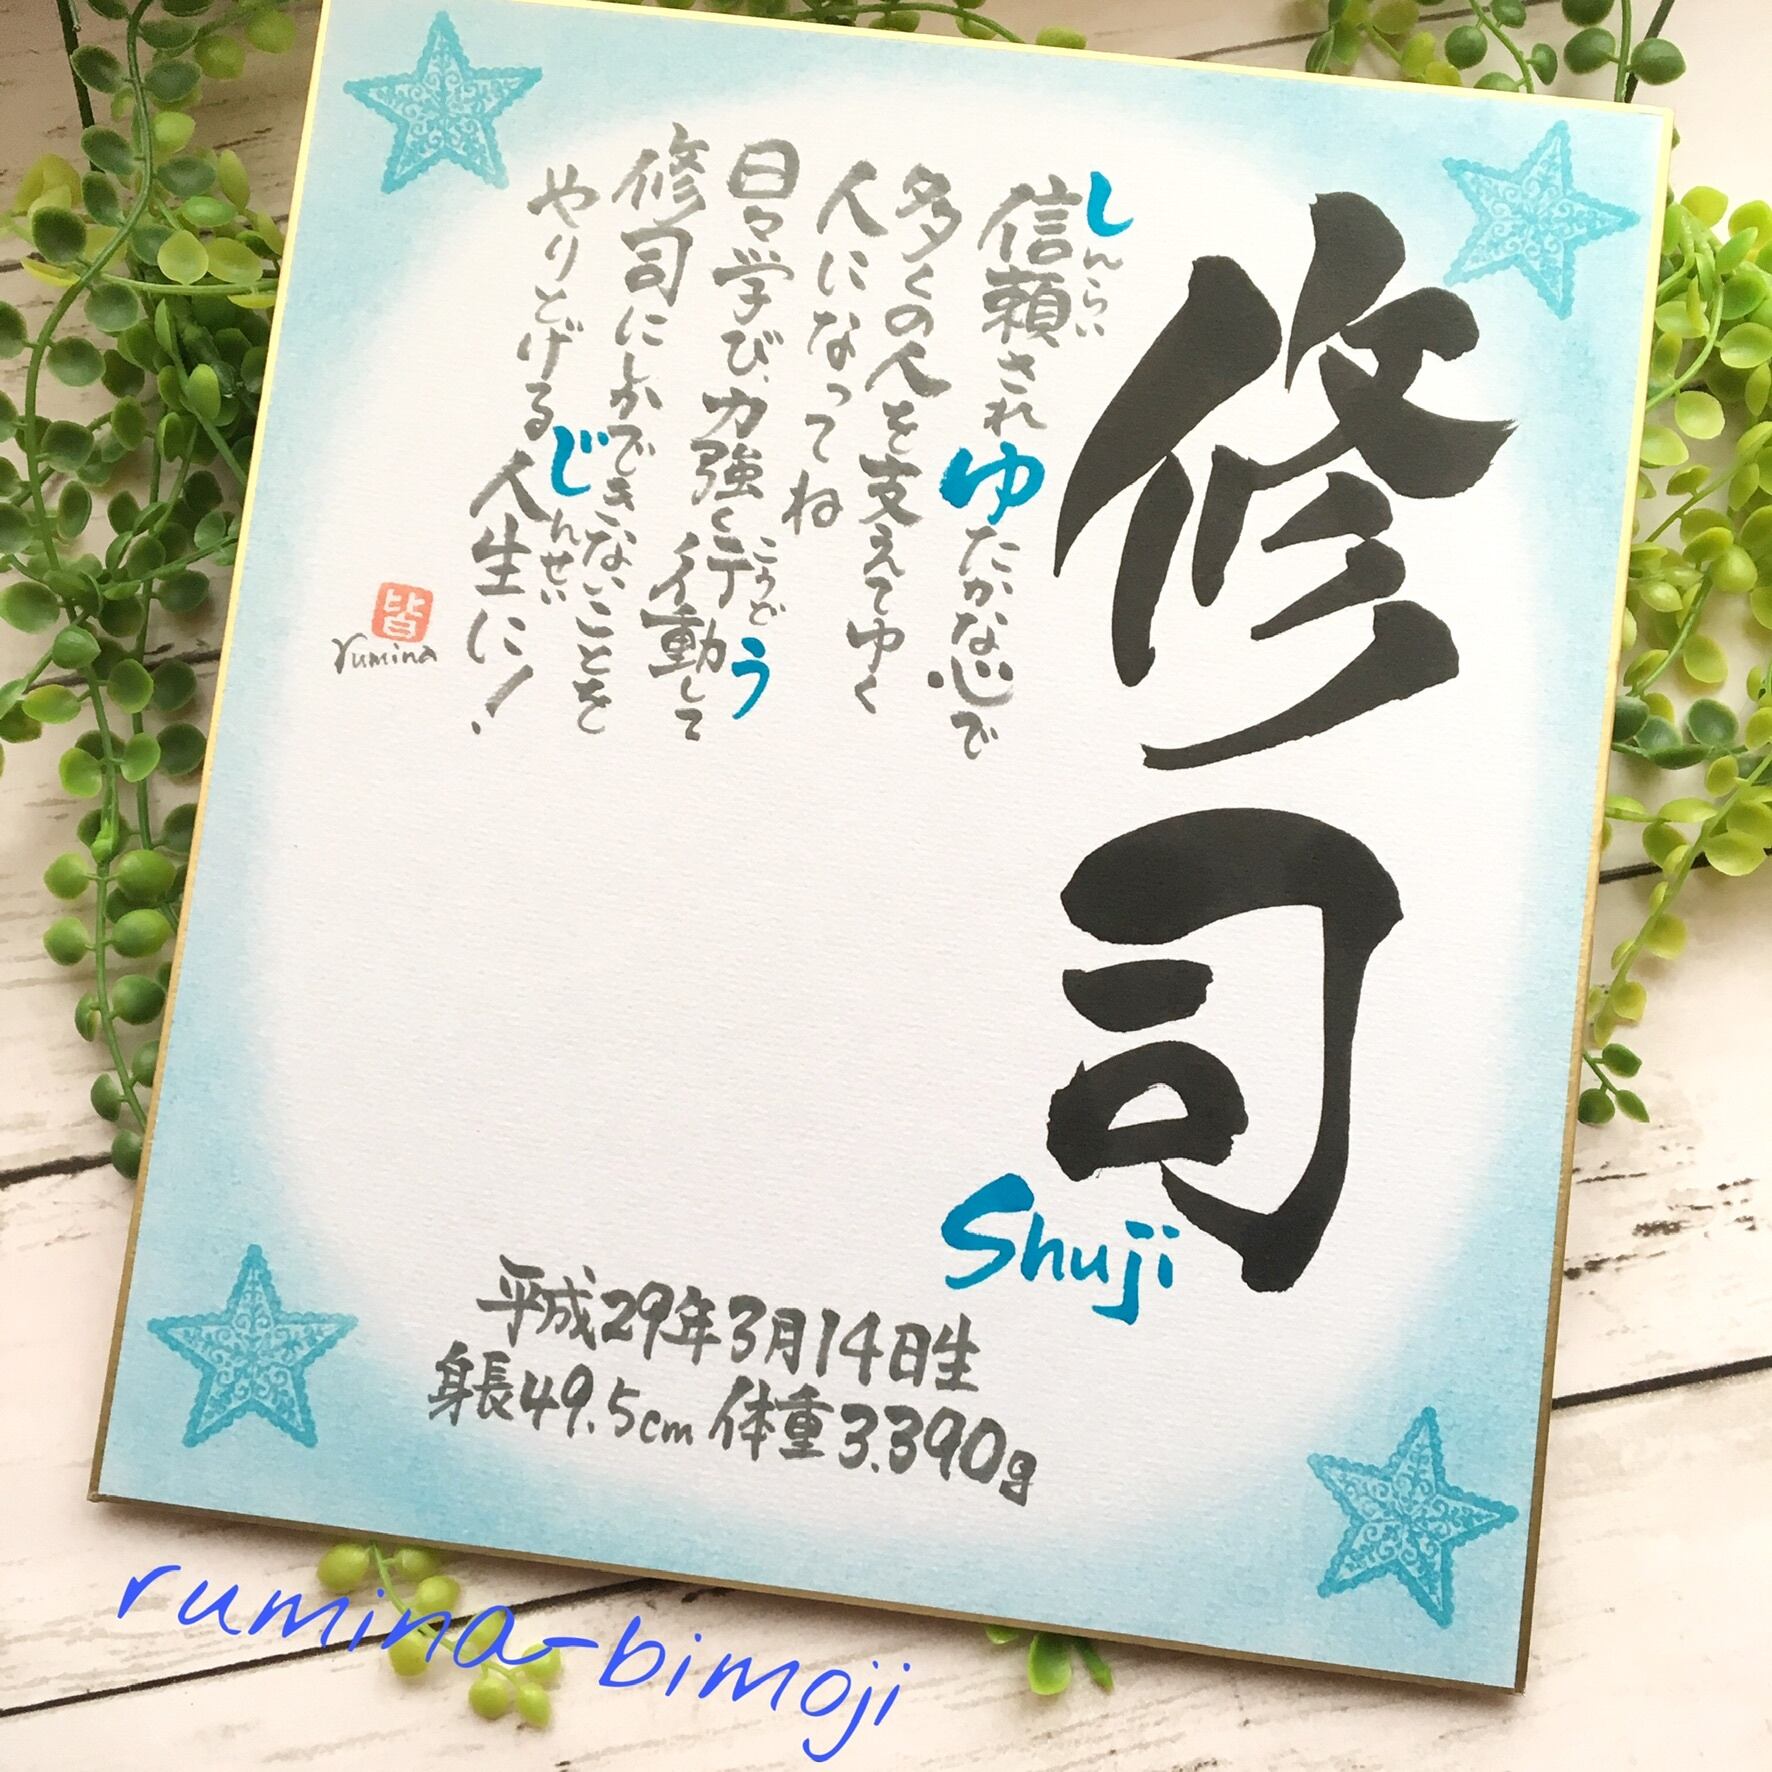 修司
Shuji
しんらい
信頼されゆたかな心で
多くの人を支えてゆく
人になってね
日々学び、力強く行動して
こうどう
修司にしかできないことを
やりとげる人生に！
じんせい
皆
rumina
平成29年3月14日生
身長49.5cm 体重3.390g
rumina-bimoji